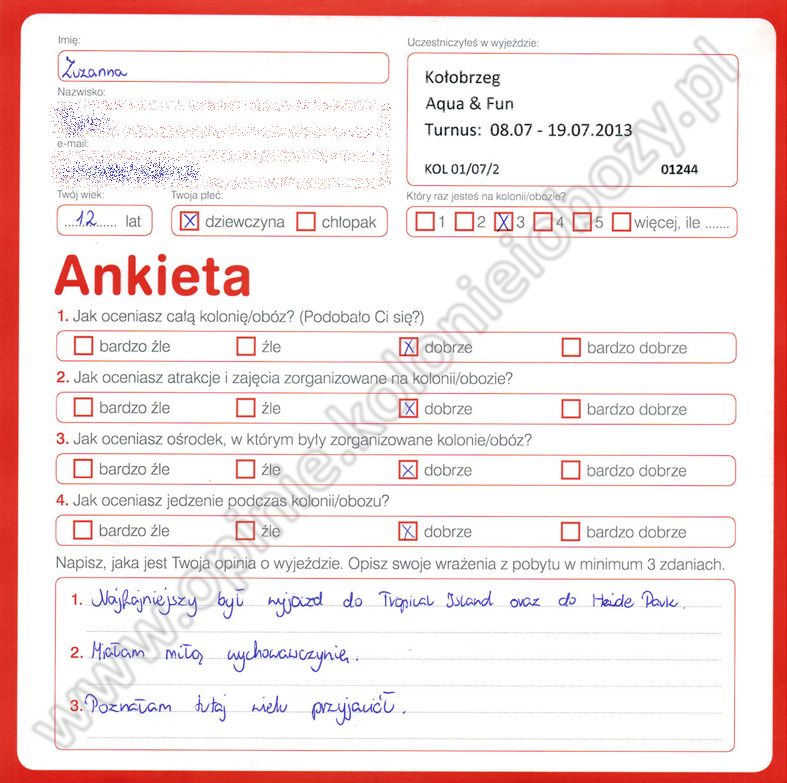 Imię:
Zuzanna
Nazwisko:
e-mail:
Twój wiek:
12 lat
Twoja płeć:
dziewczyna chłopak
Uczestniczyłeś w wyjeździe:
Kołobrzeg
Aqua & Fun
Turnus: 08.07 - 19.07.2013
KOL 01/07/2 01244
Który raz jesteś na kolonii/obozie?
1 2 3 4 5 więcej, ile .......
Ankieta
1. Jak oceniasz całą kolonię/obóz? (Podobało Ci się?)
bardzo źle źle dobrze bardzo dobrze
2. Jak oceniasz atrakcje i zajęcia zorganizowane na kolonii/obozie?
bardzo źle źle dobrze bardzo dobrze
3. Jak oceniasz ośrodek, w którym były zorganizowane kolonie/obóz?
bardzo źle źle dobrze bardzo dobrze
4. Jak oceniasz jedzenie podczas kolonii/obozu?
bardzo źle źle dobrze bardzo dobrze
Napisz, jaka jest Twoja opinia o wyjeździe. Opisz swoje wrażenia z pobytu w minimum 3 zdaniach.
1. Najfajniejszy był wyjazd do Tropical Island oraz do Heide Park.
2. Miałam miłą wychowawczynię.
3. Poznałam tutaj wielu przyjaciół.
www.opinie.kolonieiobozy.pl